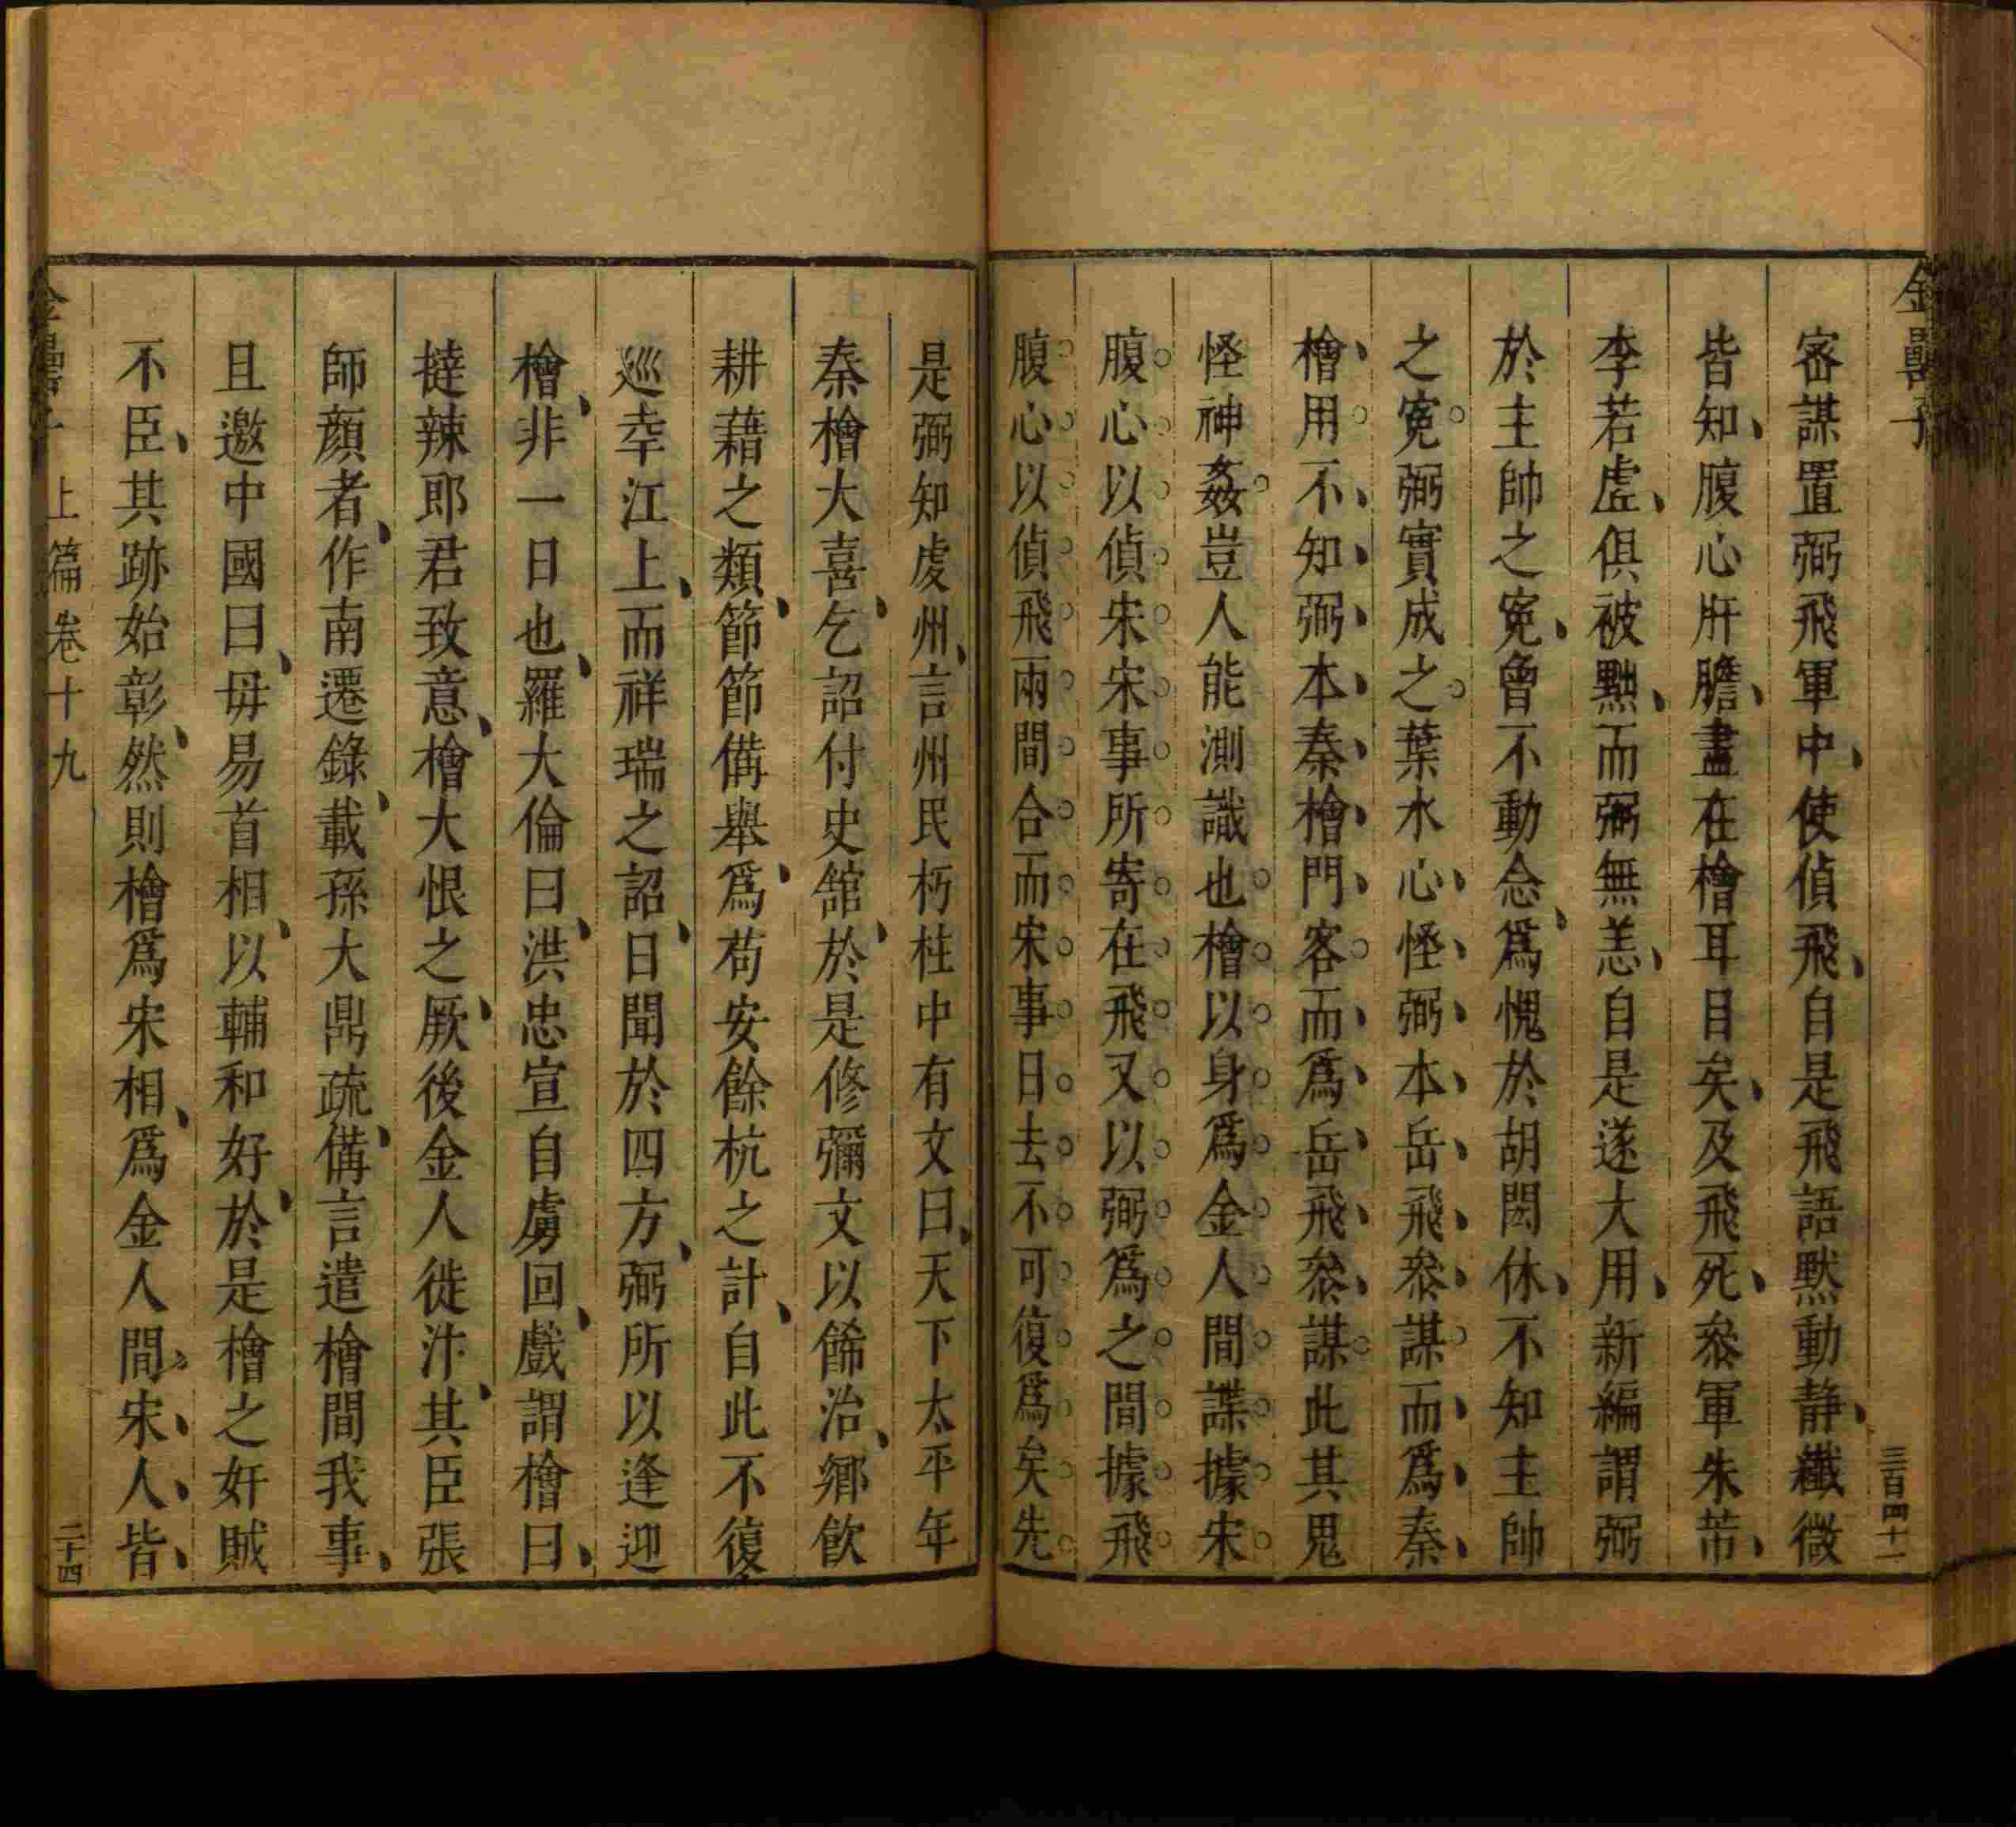 金罍子
三百四十一
宻謀置弼飛軍中使偵飛自是飛語默動静纖微
皆知腹心肝膽盡在檜耳目矣及飛死叅軍朱芾
李若虛俱被黜而弼無恙自是遂大用新編謂弼
於主帥之寃曾不動念爲愧於胡閎休不知主帥
之寃弼實成之葉水心怪弼本岳飛叅謀而爲秦
檜用不知弼本秦檜門客而爲岳飛叅謀此其鬼
怪神姦豈人能測識也檜以身爲金人間諜據宋
腹心以偵宋宋事所寄在飛又以弼爲之間據飛
腹心以偵飛兩間合而宋事日去不可復爲矣先
是弼知虔州言州民朽柱中有文曰天下太平年
秦檜大喜乞詔付史舘於是修彌文以餙治鄉飲
耕藉之類節節備舉爲苟安餘杭之計自此不復
巡幸江上而祥瑞之詔日聞於四方弼所以逢迎
檜非一日也羅大倫曰洪忠宣自虜回戲謂檜曰
撻辣郎君致意檜大恨之厥後金人徙汴其臣張
師顏者作南遷錄載孫大鼎疏備言遣檜間我事
且邀中國曰毋易首相以輔和好於是檜之奸賊
不臣其跡始彰然則檜爲宋相爲金人間宋人皆
金罍子
上篇卷十九
二十四